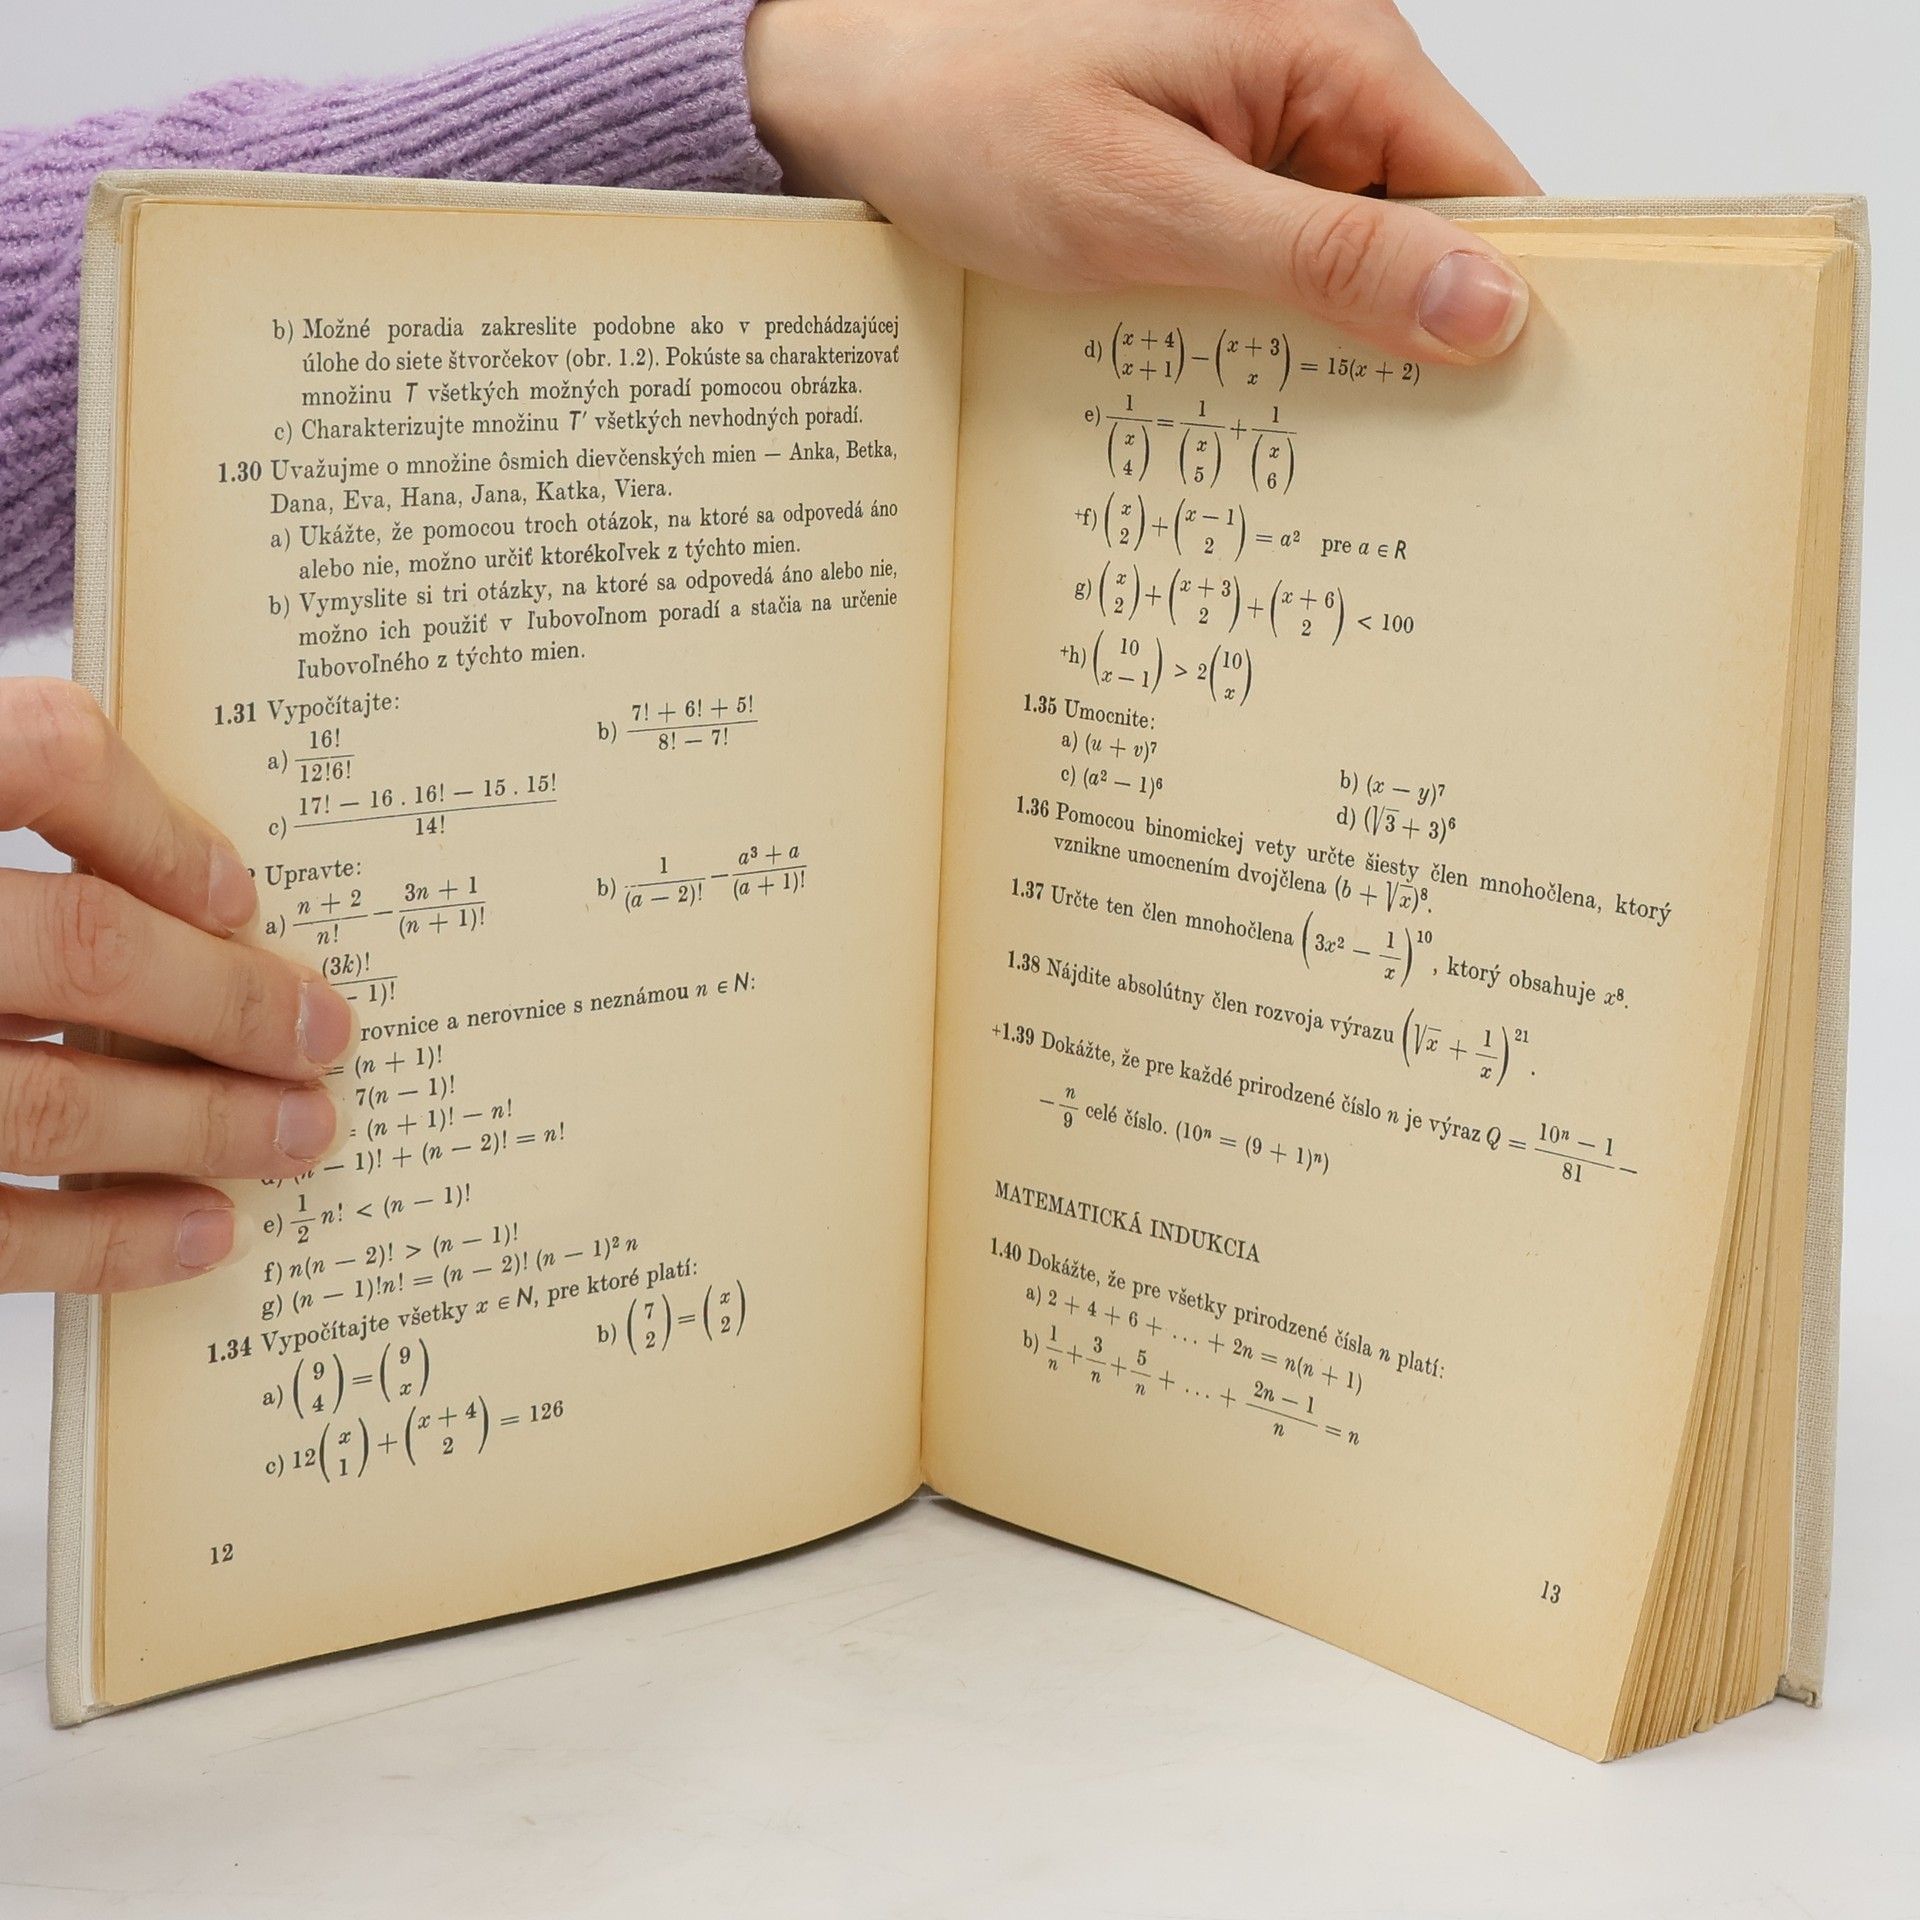 b) Možné poradia zakreslite podobne ako v predchádzajúcej
úlohe do siete štvorčekov (obr. 1.2). Pokúste sa charakterizovať
množinu T všetkých možných poradí pomocou obrázka.
c) Charakterizujte množinu T′ všetkých nevhodných poradí.
1.30 Uvažujme o množine ôsmich dievčenských mien — Anka, Betka,
Dana, Eva, Hana, Jana, Katka, Viera.
a) Ukážte, že pomocou troch otázok, na ktoré sa odpovedá áno
alebo nie, možno určiť ktorékoľvek z týchto mien.
b) Vymyslite si tri otázky, na ktoré sa odpovedá áno alebo nie,
možno ich použiť v ľubovoľnom poradí a stačia na určenie
ľubovoľného z týchto mien.
1.31 Vypočítajte:
a) 16! / 12!6!   b) (7! + 6! + 5!) / (8! — 7!)
c) (17! — 16 . 16! — 15 . 15!) / 14!
Upravte:
a) (n + 2) / n! — (3n + 1) / (n + 1)!   b) 1 / (a — 2)! — (a³ + a) / (a + 1)!
(3k)! / — 1)!
rovnice a nerovnice s neznámou n ∈ N:
= (n + 1)!
7(n — 1)!
= (n + 1)! — n!
— 1)! + (n — 2)! = n!
e) 1/2 n! < (n — 1)!
f) n(n — 2)! > (n — 1)!
g) (n — 1)!n! = (n — 2)! (n — 1)² n
1.34 Vypočítajte všetky x ∈ N, pre ktoré platí:
a) (9 4) = (9 x)   b) (7 2) = (x 2)
c) 12(x 1) + (x + 4 2) = 126
12
d) (x + 4 x + 1) — (x + 3 x) = 15(x + 2)
e) 1 / (x 4) = 1 / (x 5) + 1 / (x 6)
+f) (x 2) + (x — 1 2) = a² pre a ∈ R
g) (x 2) + (x + 3 2) + (x + 6 2) < 100
+h) (10 x — 1) > 2(10 x)
1.35 Umocnite:
a) (u + v)⁷   b) (x — y)⁷
c) (a² — 1)⁶   d) (√3 + 3)⁶
1.36 Pomocou binomickej vety určte šiesty člen mnohočlena, ktorý
vznikne umocnením dvojčlena (b + √x)⁸.
1.37 Určte ten člen mnohočlena (3x² — 1/x)¹⁰, ktorý obsahuje x⁸.
1.38 Nájdite absolútny člen rozvoja výrazu (√x + 1/x)²¹.
+1.39 Dokážte, že pre každé prirodzené číslo n je výraz Q = (10ⁿ — 1) / 81 —
— n/9 celé číslo. (10ⁿ = (9 + 1)ⁿ)
MATEMATICKÁ INDUKCIA
1.40 Dokážte, že pre všetky prirodzené čísla n platí:
a) 2 + 4 + 6 + ... + 2n = n(n + 1)
b) 1/n + 3/n + 5/n + ... + (2n — 1)/n = n
13